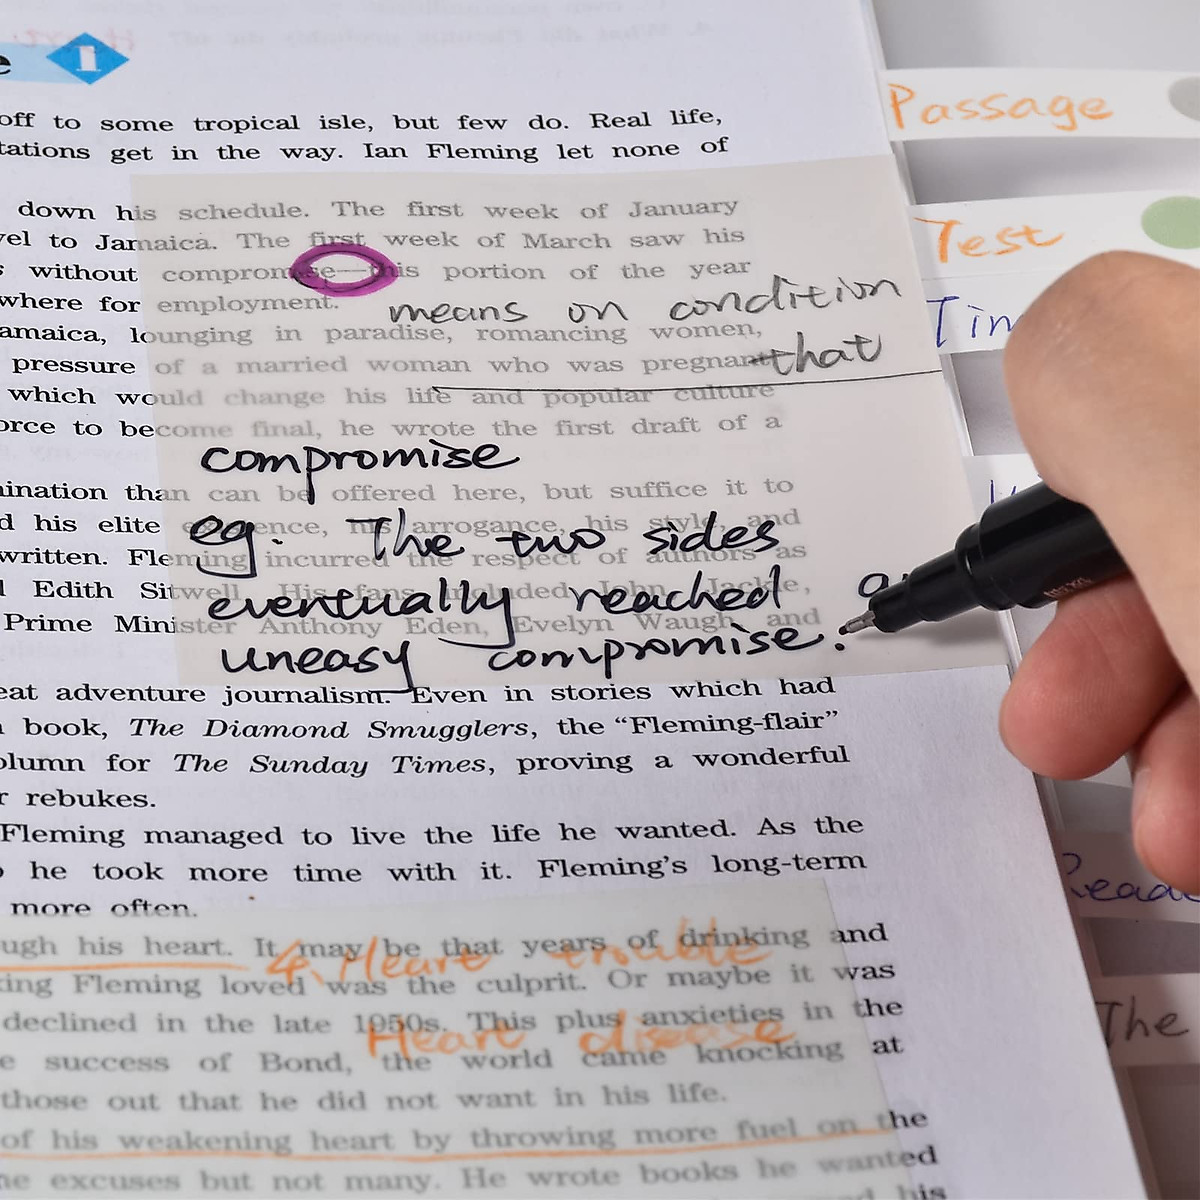 1
off to some tropical isle, but few do. Real life,
tations get in the way. Ian Fleming let none of
down his schedule. The first week of January
vel to Jamaica. The first week of March saw his
s without compromise—this portion of the year
where for employment.
means on condition
amaica, lounging in paradise, romancing women,
pressure of a married woman who was pregnant
that
which would change his life and popular culture
orce to become final, he wrote the first draft of a
compromise
ination than can be offered here, but suffice it to
d his elite his arrogance, his style, and
eg. The two sides
written. Fleming incurred the respect of authors as
d Edith Sitwell. His fans included John Jackle,
eventually reached a
Prime Minister Anthony Eden, Evelyn Waugh and
uneasy compromise.
eat adventure journalism. Even in stories which had
book, The Diamond Smugglers, the “Fleming-flair”
olumn for The Sunday Times, proving a wonderful
r rebukes.
Fleming managed to live the life he wanted. As the
he took more time with it. Fleming’s long-term
more often.
ugh his heart. It may be that years of drinking and
Heart trouble
king Fleming loved was the culprit. Or maybe it was
declined in the late 1950s. This plus anxieties in the
Heart disease
e success of Bond, the world came knocking at
those out that he did not want in his life.
of his weakening heart by throwing more fuel on the
ne excuses but not many. He wrote books he wanted
his
Passage
Test
Tim
Read
The